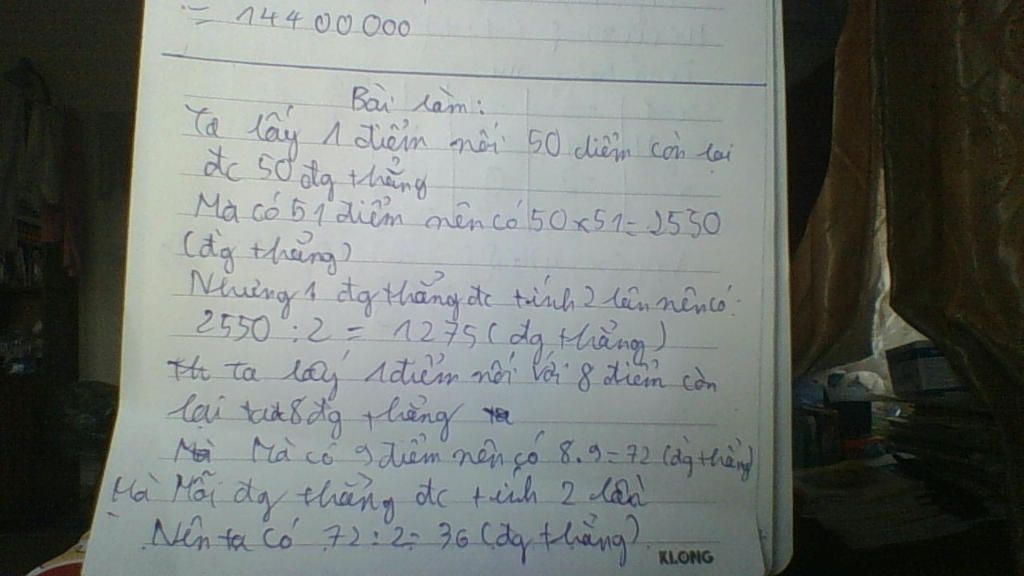 = 14400000
Bài làm:
Ta lấy 1 điểm nối 50 điểm còn lại
đc 50 đg thẳng
Mà có 51 điểm nên có 50×51=2550
(đg thẳng)
Nhưng 1 đg thẳng đc tính 2 lần nên có:
2550:2 = 1275 (đg thẳng)
Ta lấy 1 điểm nối với 8 điểm còn
lại 8 đg thẳng
Mà có 9 điểm nên có 8.9=72 (đg thẳng)
Mà Mỗi đg thẳng đc tính 2 lần
Nên ta có 72:2= 36 (đg thẳng)
KLONG